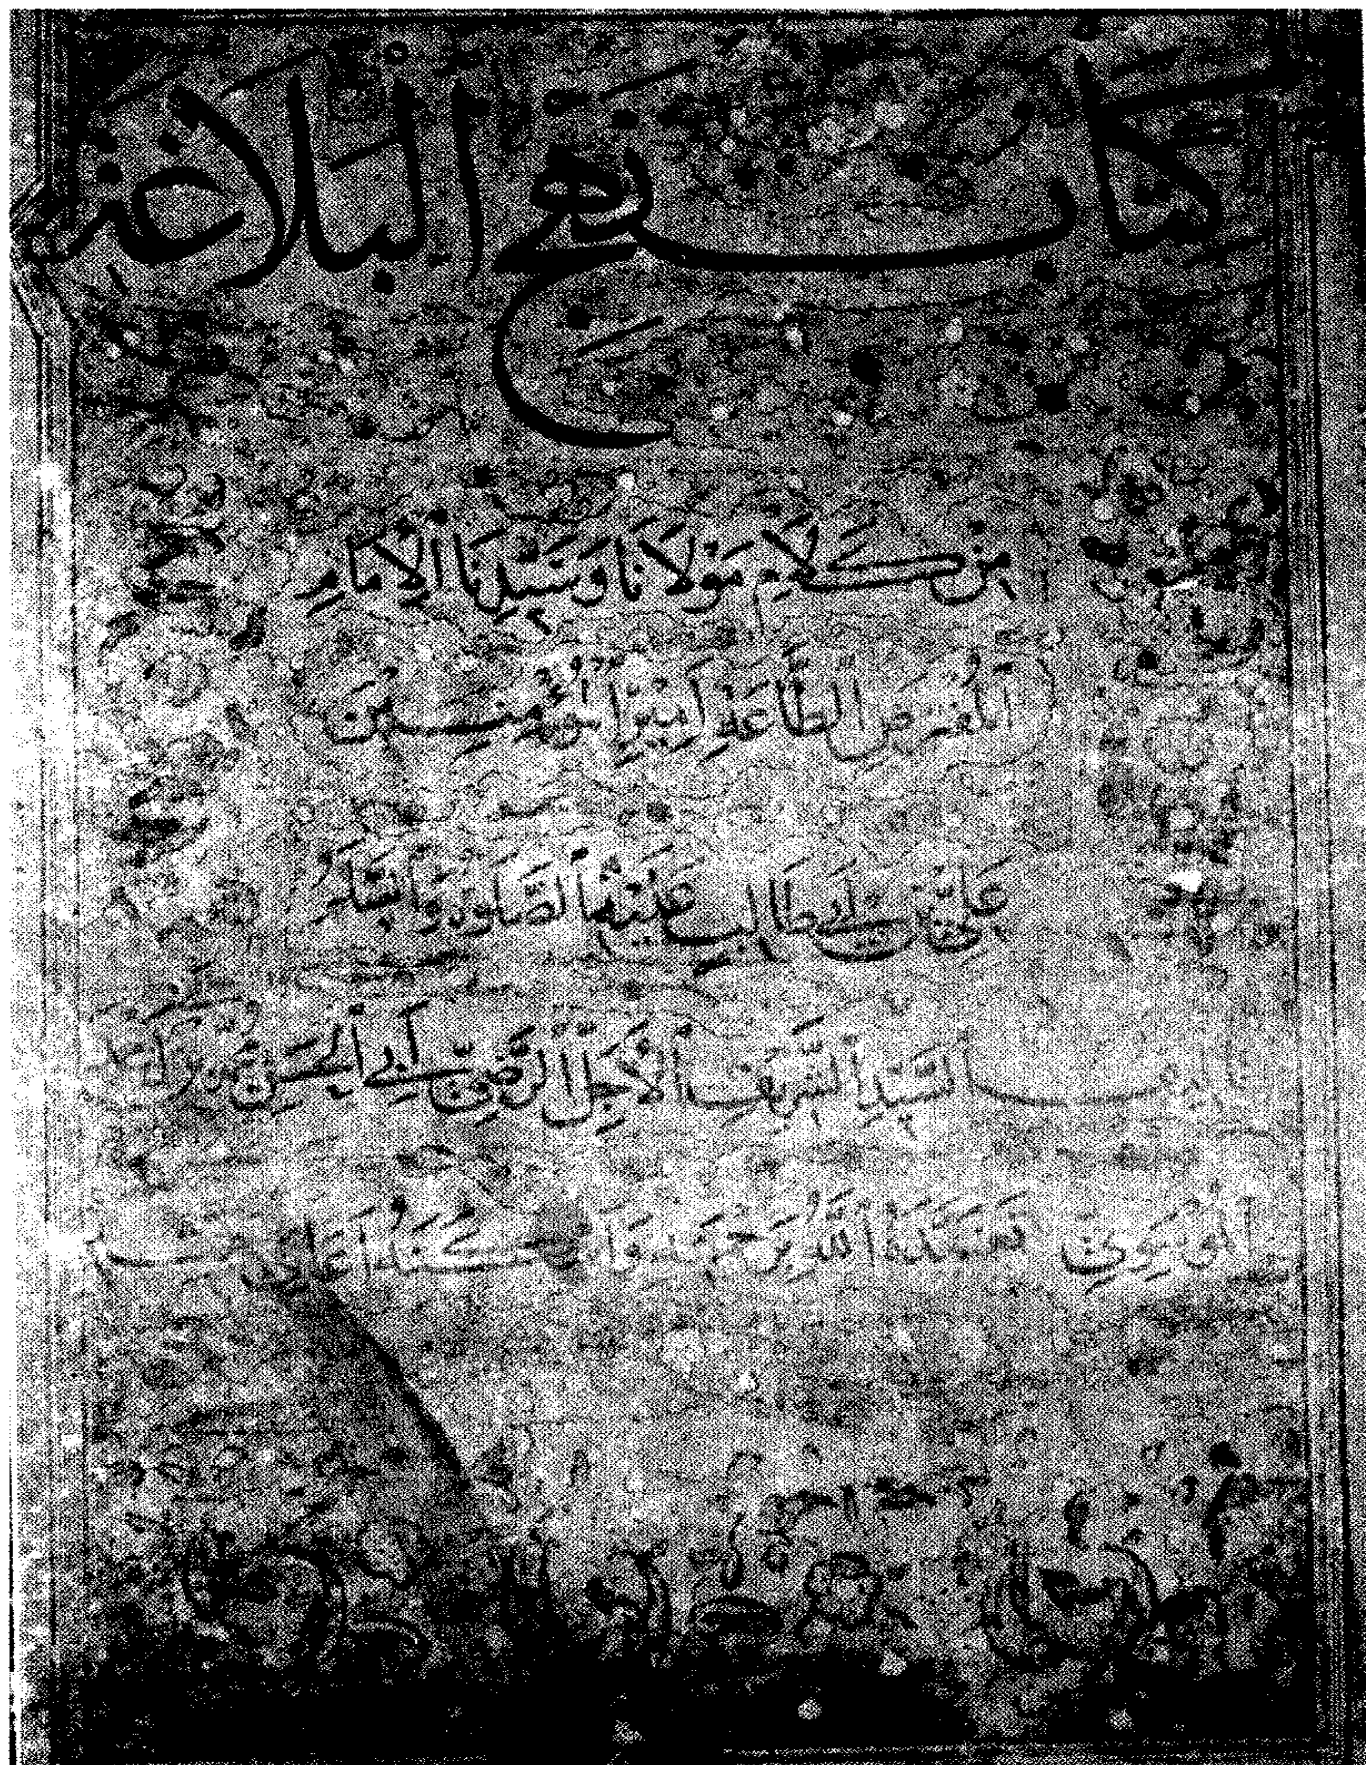 كتاب نهج البلاغة
من كَلَامِ مَوْلَانَا وَسَيِّدِنَا الإِمَامِ
المُفْتَرَضِ الطَّاعَةِ أَمِيرِ المُؤْمِنِينَ
عَلِيِّ بْنِ أَبِي طَالِبٍ عَلَيْهِ الصَّلوةُ وَالسَّلَمُ
تأليف السَّيِّدِ الشَّرِيفِ الأَجَلِّ الرَّضِيِّ أَبِي الحَسَنِ
المُوسَوِيّ تَغَمَّدَهُ اللهُ بِرَحْمَتِهِ وَأَسْكَنَهُ